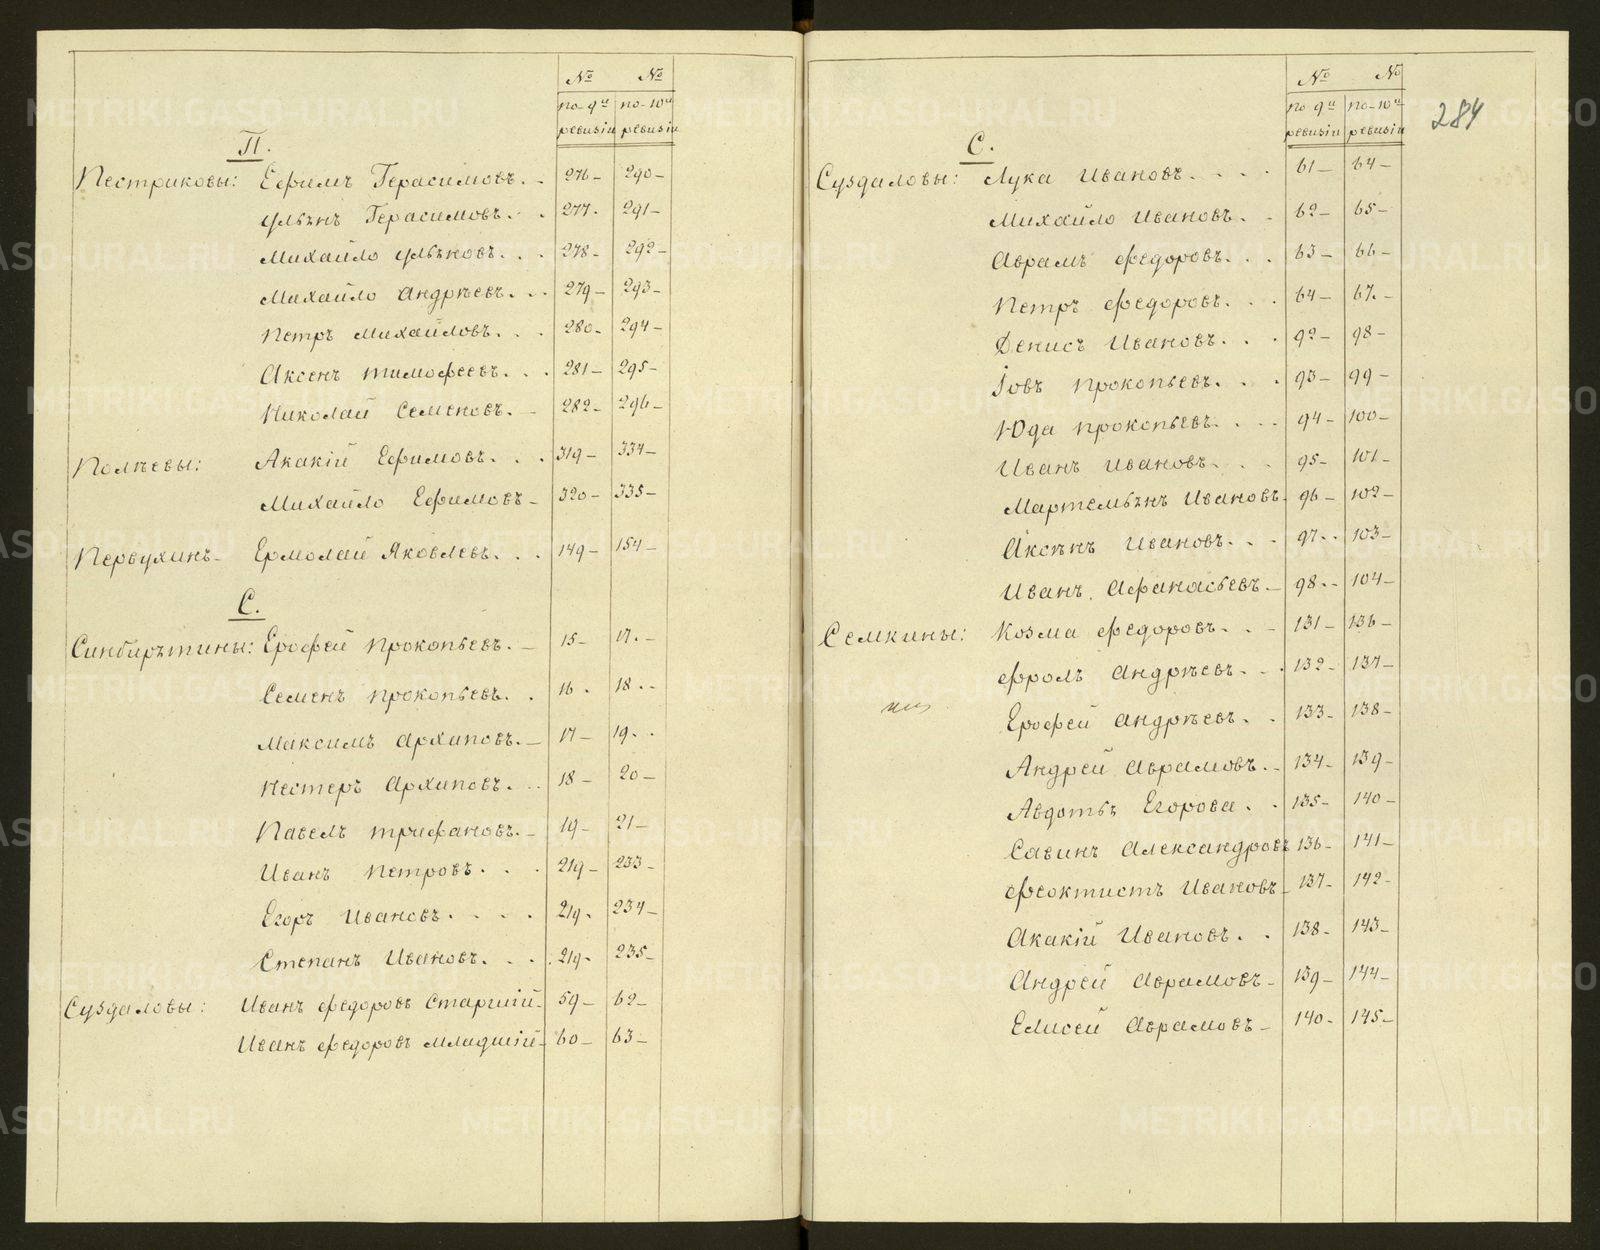 № №
по 9й по 10й
ревизіи ревизіи
П.
Пестриковы: Ефимъ Герасимовъ. . 276 290
Ульянъ Герасимовъ. . 277. 291
Михайло Ульяновъ. . . 278 292
Михайло Андрѣевъ. . . 279 293
Петръ Михайловъ. . . 280 294
Аксенъ Тимофеевъ. . . 281 295
Николай Семеновъ. 282 296
Полѣевы: Акакій Ефимовъ. . . 319 334
Михайло Ефимовъ 320 335
Первухинъ Ермолай Яковлевъ. . . 149 154
С.
Синбиртины: Ерофей Прокопьевъ. 15 17.
Семенъ Прокопьевъ. . 16. 18..
Максимъ Архиповъ. 17 19..
Нестеръ Архиповъ. . 18 20
Павелъ Трифановъ. 19 21
Иванъ Петровъ. . . 219 233
Егоръ Ивановъ. . . . 219. 234
Степанъ Ивановъ. . . 219. 235
Суздаловы: Иванъ Федоровъ Старшій 59 62
Иванъ Федоровъ Младшій 60 63
№ №
по 9й по 10й
ревизіи ревизіи
284
С.
Суздаловы: Лука Ивановъ. . . . 61 64
Михайло Ивановъ. 62 65
Аврамъ Федоровъ. . . 63 66
Петръ Федоровъ. . . 64 67.
Денисъ Ивановъ. . . 92 98
Іовъ Прокопьевъ. . . 93 99
Юда Прокопьевъ. . . 94 100
Иванъ Ивановъ. . . 95 101
Мартемьянъ Ивановъ 96 102
Аксѣнъ Ивановъ. . . 97.. 103
Иванъ Афанасьевъ 98.. 104
Семкины: Козма Федоровъ. . 131 136
Фролъ Андрѣевъ. . . 132 137
Ерофей Андрѣевъ. . 133 138
Андрей Аврамовъ. . 134 139
Авдотья Егорова. . 135 140
Савинъ Александровъ 136 141
Феоктистъ Ивановъ 137 142
Акакій Ивановъ. . 138 143
Андрей Аврамовъ 139 144
Елисей Аврамовъ 140 145
METRIKI.GASO-URAL.RU